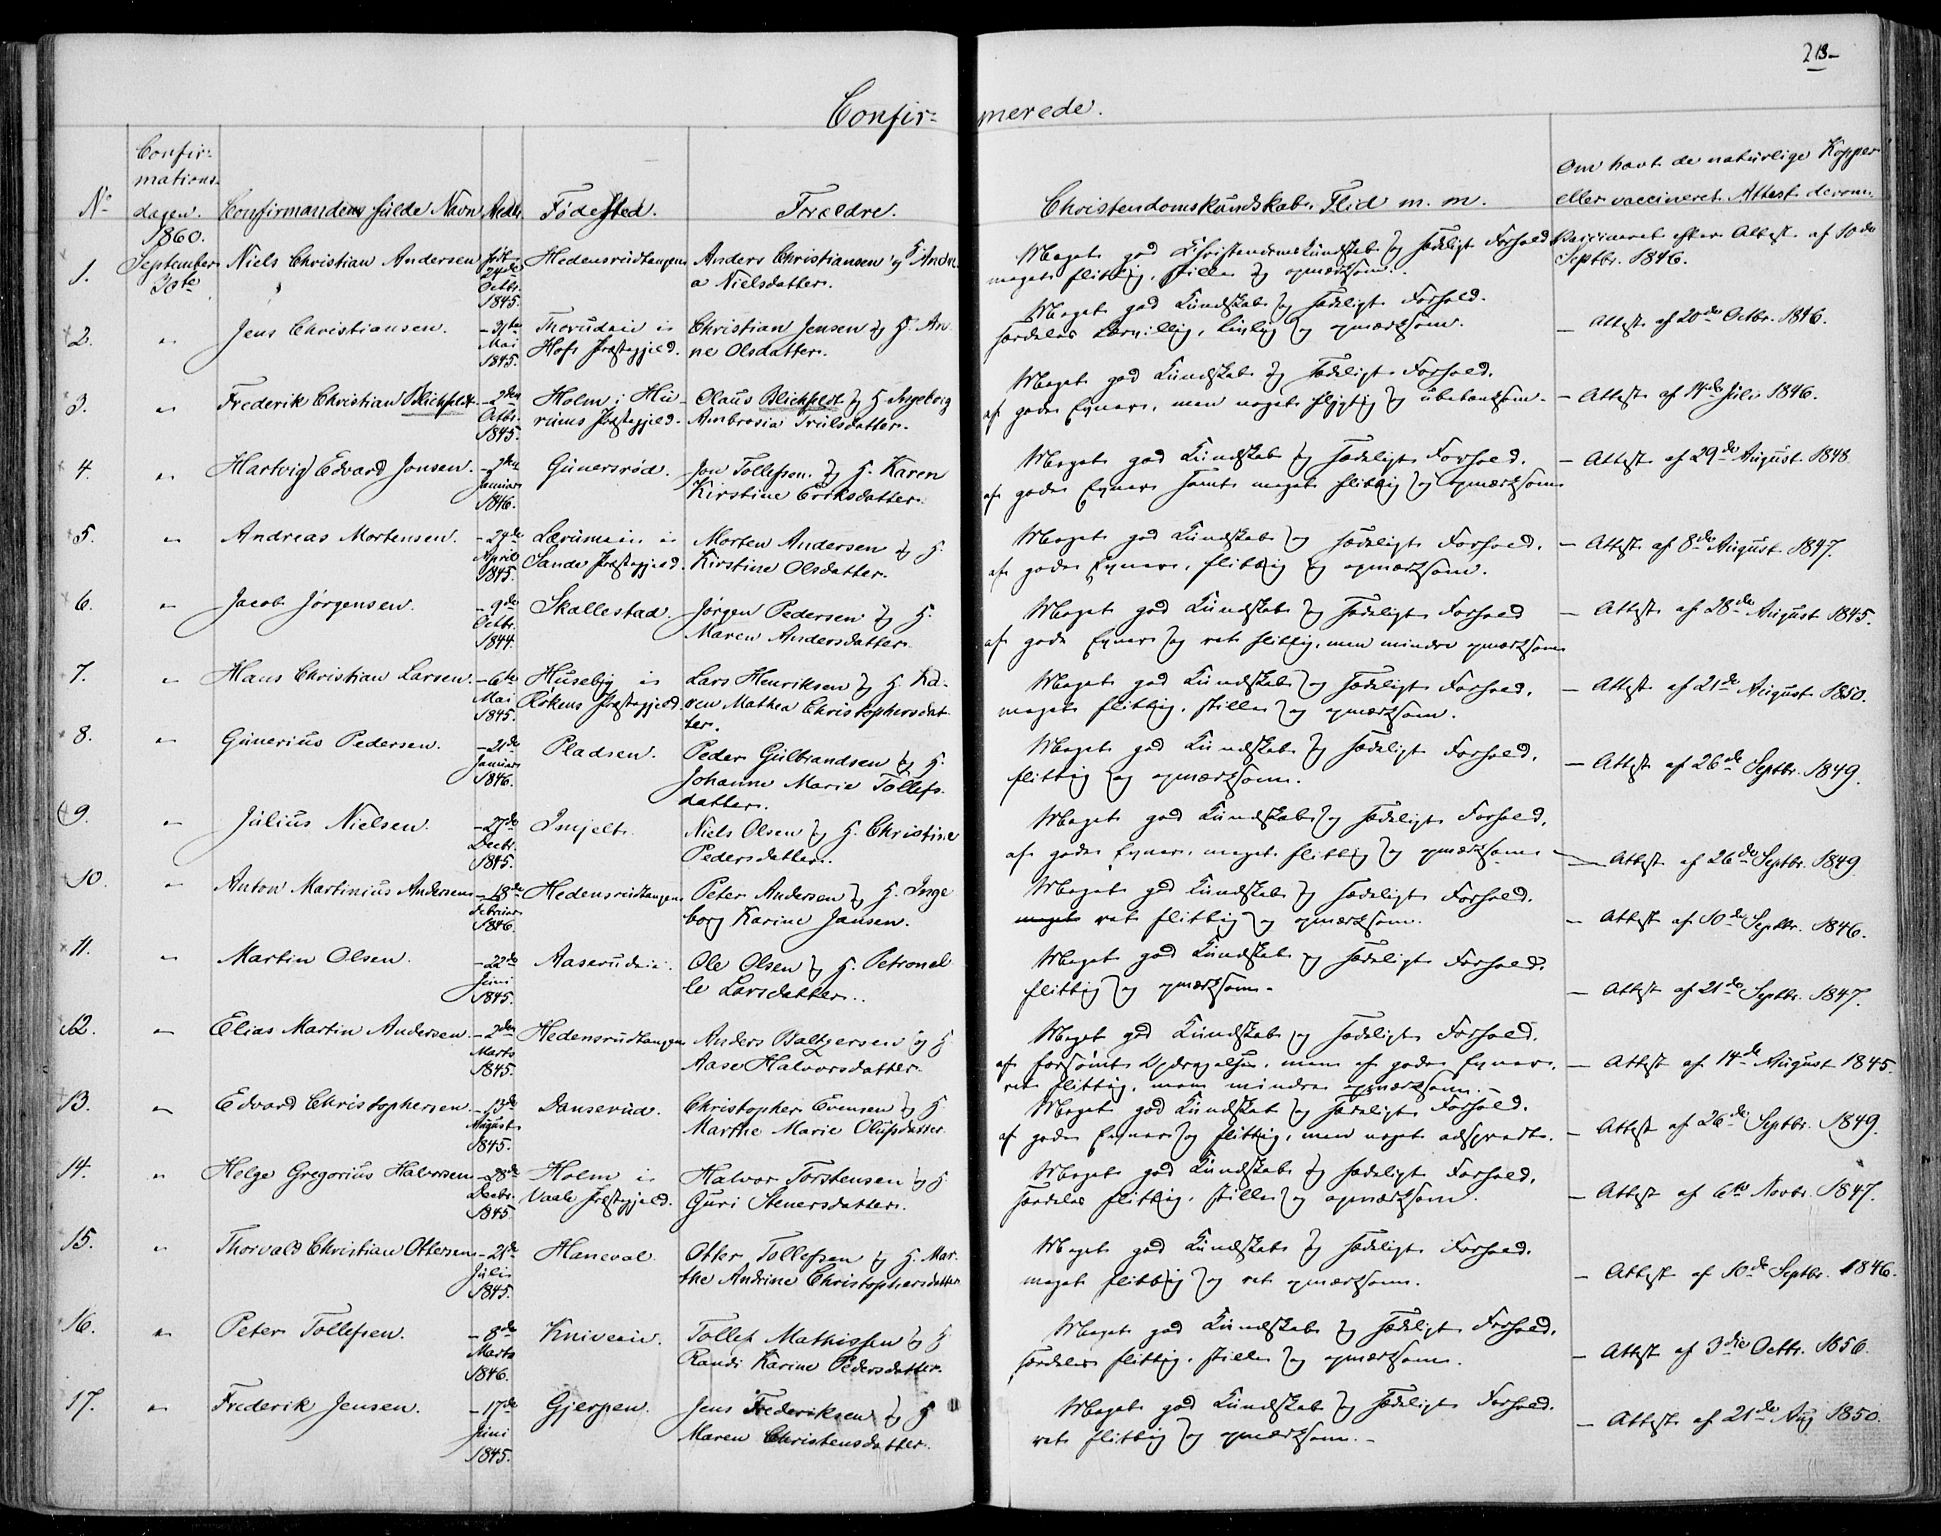 213
Confirmerede.
No
Confirmationsdagen.
Confirmandens fulde Navn
Alder
Fødested.
Forældre.
Christendomskundskab, Flid m. m.
Om havt de naturlige Kopper
eller vaccineret. Attest derom.
1860.
1. September 30te Niels Christian Andersen født 24de Octbr. 1845. Hedensrudtangen Anders Christiansen og H. Anna Nielsdatter. Meget god Christendomskundskab og sædeligt Forhold
meget flittig, stille og opmærksom. Vaccineret efter Attest af 10de Septbr. 1846.
2. " Jens Christiansen. - 31te Mai 1845. Thorudeie i Hofs Præstegjeld. Christian Jensen og H. Anne Olsdatter. Meget god Kundskab og sædeligt Forhold.
særdeles lærvillig, livlig og opmærksom. - Attest af 20de Octbr. 1846.
3. " Frederik Christian Blichfeldt - 2den Octbr. 1845. Holm i Hurums Præstegjeld. Olaus Blichfeldt og H. Ingeborg Ambrosia Trulsdatter. Meget god Kundskab og sædeligt Forhold.
af gode Evner, men noget flygtig og ubetænksom. - Attest af 14de Juli 1846.
4. " Hartvig Edvard Jonsen. Januar 1846. Gunersrød. Jon Tollefsen og H. Karen Kirstine Eriksdatter. Meget god Kundskab og sædeligt Forhold.
af gode Evner samt meget flittig og opmærksom - Attest af 29de August 1848.
5. " Andreas Mortensen. - 24de April 1845. Lærumeie i Sande Præstegjeld. Morten Andersen og H. Kirstine Olsdatter. Meget god Kundskab og sædeligt Forhold.
af gode Evner, flittig og opmærksom. - Attest af 8de August 1847.
6. " Jacob Jørgensen. - 9de Octbr. 1844. Skallestad. Jørgen Pedersen og H. Maren Andersdatter. Meget god Kundskab og sædeligt Forhold
af gode Evner og ret flittig, men mindre opmærksom - Attest af 28de August 1845.
7. " Hans Christian Larsen. - 6te Mai 1845. Huseby i Røkens Præstegjeld Lars Henriksen og H. Karen Mathea Christophersdatter. Meget god Kundskab og sædeligt Forhold.
meget flittig, stille og opmærksom. - Attest af 21de August 1850.
8. " Gunerius Pedersen. - 21de Januar 1846. Pladsen. Peder Gulbrandsen og H. Johanne Marie Tollefsdatter. Meget god Kundskab og sædeligt Forhold.
flittig og opmærksom. - Attest af 26de Septbr. 1849.
9. " Julius Nielsen. - 27de Decbr. 1845. Imjelt. Niels Olsen og H. Christine Pedersdatter. Meget god Kundskab og sædeligt Forhold.
af gode Evner, meget flittig og opmærksom - Attest af 26de Septbr. 1849
10. " Anton Martinius Andersen - 18de Februar 1846. Hedensrudtangen Peter Andersen og H. Ingeborg Karine Jansen. Meget god Kundskab og sædeligt Forhold.
meget ret flittig og opmærksom. - Attest af 10de Septbr. 1846.
11. " Martin Olsen. - 22de Juni 1845. Aaserudeie. Ole Olsen og H. Petronelle Larsdatter. Meget god Kundskab og sædeligt Forhold.
flittig og opmærksom. - Attest af 21de Septbr. 1847.
12. " Elias Martin Andersen - 2den Marts 1845. Hedensrudtangen Anders Baltzersen og H Aase Halvorsdatter. Meget god Kundskab og sædeligt Forhold.
af forsømt Opdragelse, men af gode Evner.
ret flittig, men mindre opmærksom. - Attest af 14de August 1845.
13. " Edvard Christophersen - 13de August 1845. Danserud. Christopher Evensen og H Marthe Marie Olufsdatter Meget god Kundskab og sædeligt Forhold.
af gode Evner og flittig, men noget adspredt. - Attest af 26de Septbr. 1849.
14. " Helge Gregorius Halvorsen - 28de Decbr. 1845 Holm i Vaale Præstegjeld. Halvor Torstensen og H Guri Stenersdatter. Meget god Kundskab og sædeligt Forhold.
særdeles flittig, stille og opmærksom. - Attest af 6te Novbr. 1847.
15. " Thorvald Christian Ottersen - 21de Juli 1845. Haneval. Otter Tollefsen og H. Marthe Andrine Christophersdatter Meget god Kundskab og sædeligt Forhold.
meget flittig og ret opmærksom. - Attest af 10de Septbr. 1846.
16. " Peter Tollefsen. - 8de Marts 1846. Kniveeie. Tollef Mathissen og H Randi Karine Pedersdatter. Meget god Kundskab og sædeligt Forhold.
særdeles flittig, stille og opmærksom. - Attest af 3die Octbr. 1856.
17. " Frederik Jensen. - 17de Juni 1845. Gjerpen. Jens Frederiksen og H Maren Christensdatter. Meget god Kundskab og sædeligt Forhold.
ret flittig og opmærksom. - Attest af 21de Aug 1850.